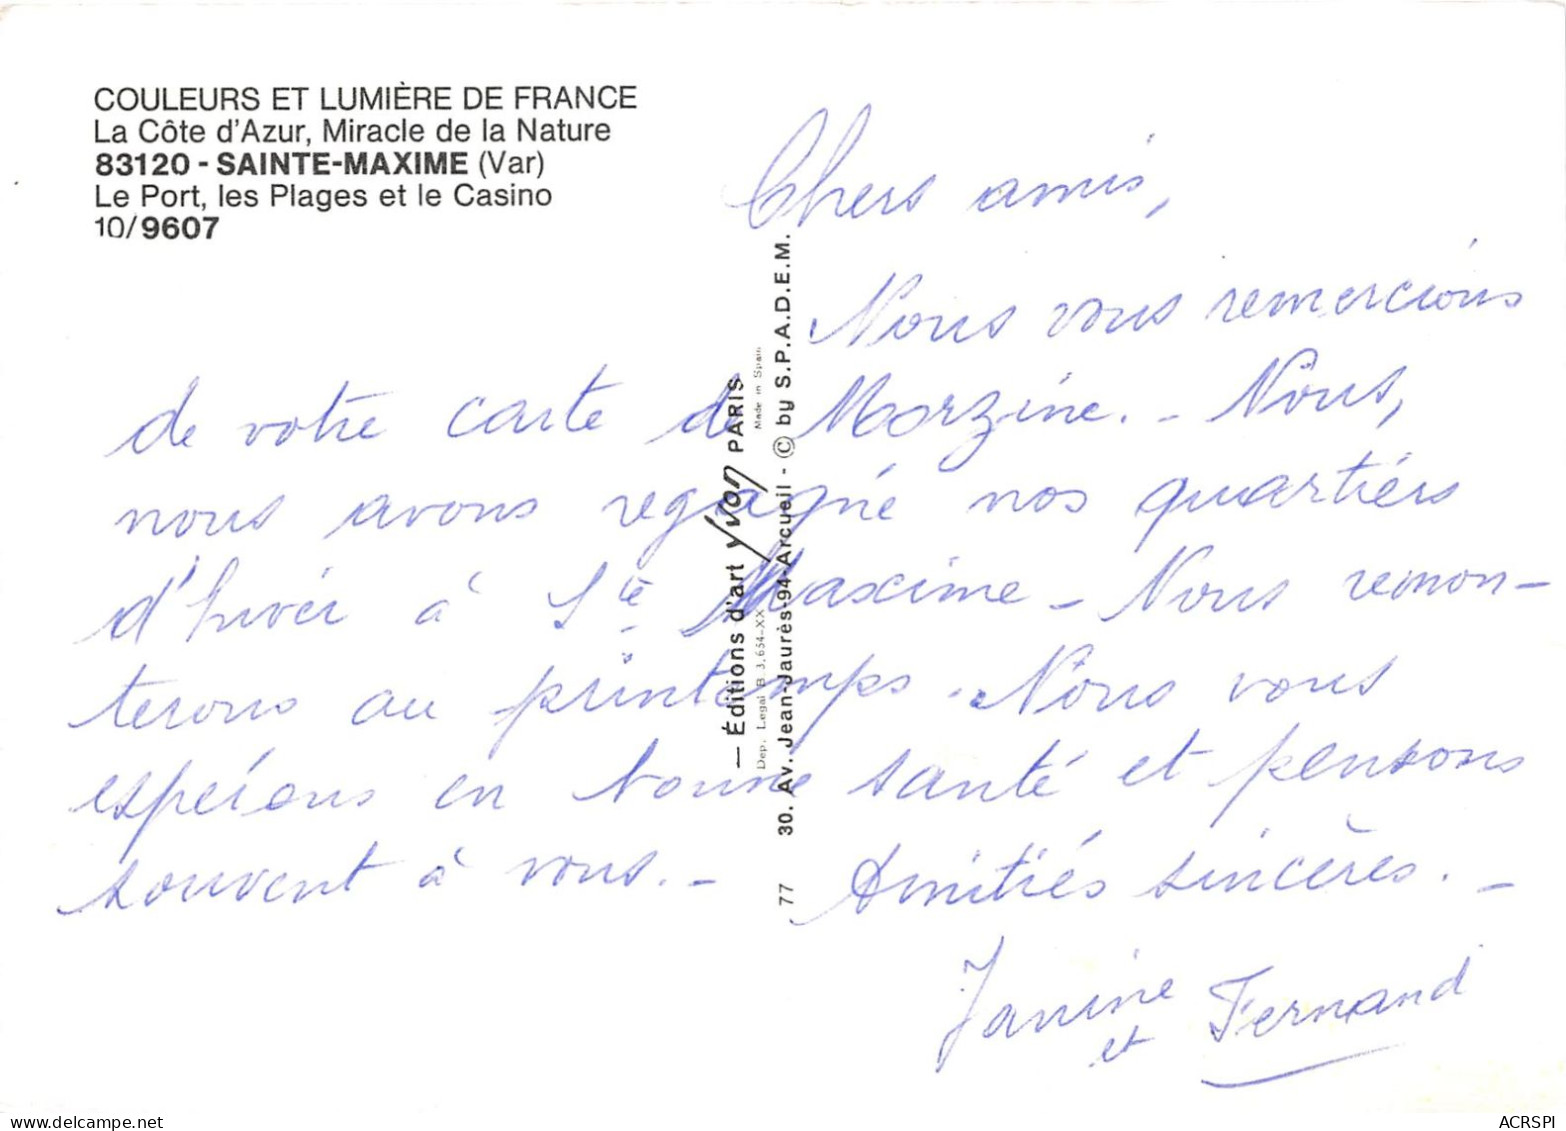 COULEURS ET LUMIÈRE DE FRANCE
La Côte d'Azur, Miracle de la Nature
83120 - SAINTE-MAXIME (Var)
Le Port, les Plages et le Casino
10/9607
Chers amis,
Nous vous remercions
de votre carte de Morzine. - Nous,
nous avons regagné nos quartiers
d'hiver à Ste Maxime - Nous remon-
terons au printemps. Nous vous
espérons en bonne santé et pensons
souvent à vous. - Amitiés sincères. -
Janine
et Fernand
— Éditions d'art Yvon PARIS
Made in Spain
Dep. Legal B. 3.654-XX
77 30. Av. Jean-Jaurès-94-Arcueil - © by S.P.A.D.E.M.
www.delcampe.net
ACRSPI